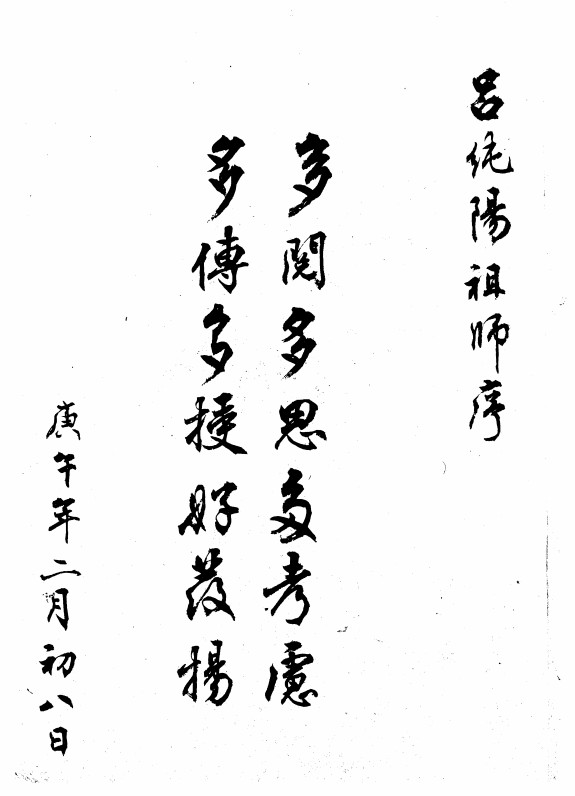 呂純陽祖師序
多閱多思多考慮
多傳多授好發揚
庚午年二月初八日